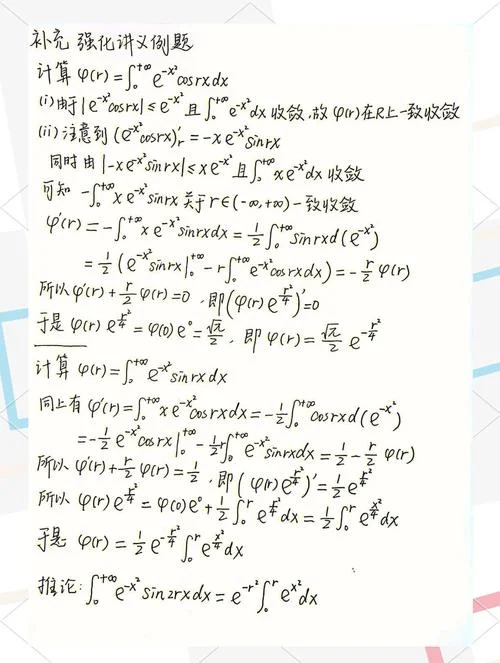 补充 强化讲义例题
计算 φ(r)=∫₀^{+∞} e^{-x²}cosrxdx
(i)由于|e^{-x²}cosrx|≤e^{-x²} 且∫₀^{+∞} e^{-x²}dx 收敛,故 φ(r)在R上一致收敛
(ii)注意到 (e^{-x²}cosrx)'_r=-xe^{-x²}sinrx
同时由|-xe^{-x²}sinrx|≤xe^{-x²}且∫₀^{+∞} xe^{-x²}dx 收敛
可知 -∫₀^{+∞} xe^{-x²}sinrx 关于r∈(-∞,+∞)一致收敛
φ'(r)=-∫₀^{+∞} xe^{-x²}sinrxdx=½∫₀^{+∞} sinrxd(e^{-x²})
=½(e^{-x²}sinrx|₀^{+∞}-r∫₀^{+∞} e^{-x²}cosrxdx)=-r/2 φ(r)
所以 φ'(r)+r/2 φ(r)=0 ,即(φ(r)e^{r²/4})'=0
于是 φ(r) e^{r²/4}=φ(0)e⁰=√π/2, 即 φ(r)=√π/2 e^{-r²/4}
计算 φ(r)=∫₀^{+∞} e^{-x²}sinrxdx
同上有 φ'(r)=∫₀^{+∞} xe^{-x²}cosrxdx=-½∫₀^{+∞} cosrxd(e^{-x²})
=-½e^{-x²}cosrx|₀^{+∞}-½r∫₀^{+∞} e^{-x²}sinrxdx=½-r/2 φ(r)
所以 φ'(r)+r/2 φ(r)=½, 即(φ(r)e^{r²/4})'=½e^{r²/4}
所以 φ(r)e^{r²/4}=φ(0)e⁰+½∫₀^r e^{x²/4}dx=½∫₀^r e^{x²/4}dx
于是 φ(r)=½e^{-r²/4}∫₀^r e^{x²/4}dx
推论:∫₀^{+∞} e^{-x²}sin2rxdx=e^{-r²}∫₀^r e^{x²}dx